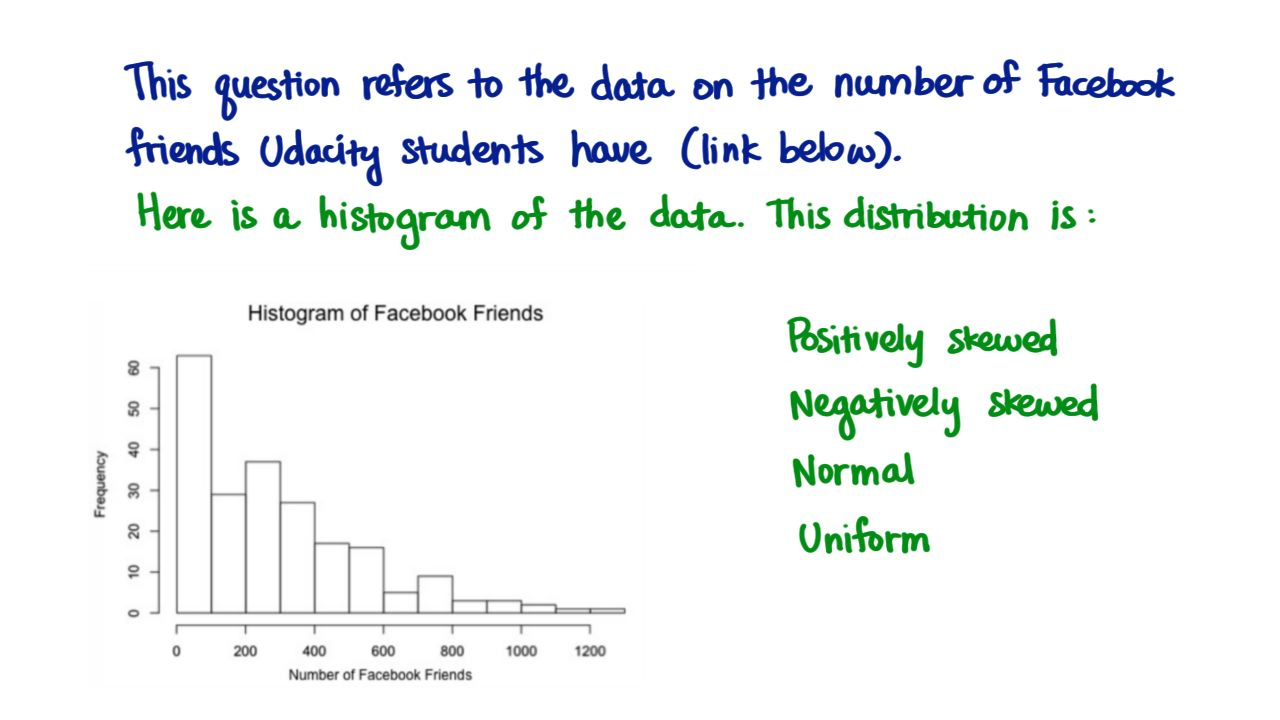 This question refers to the data on the number of Facebook
friends Udacity students have (link below).
Here is a histogram of the data. This distribution is:
Histogram of Facebook Friends
Frequency
60
50
40
30
20
10
0
0 200 400 600 800 1000 1200
Number of Facebook Friends
Positively skewed
Negatively skewed
Normal
Uniform